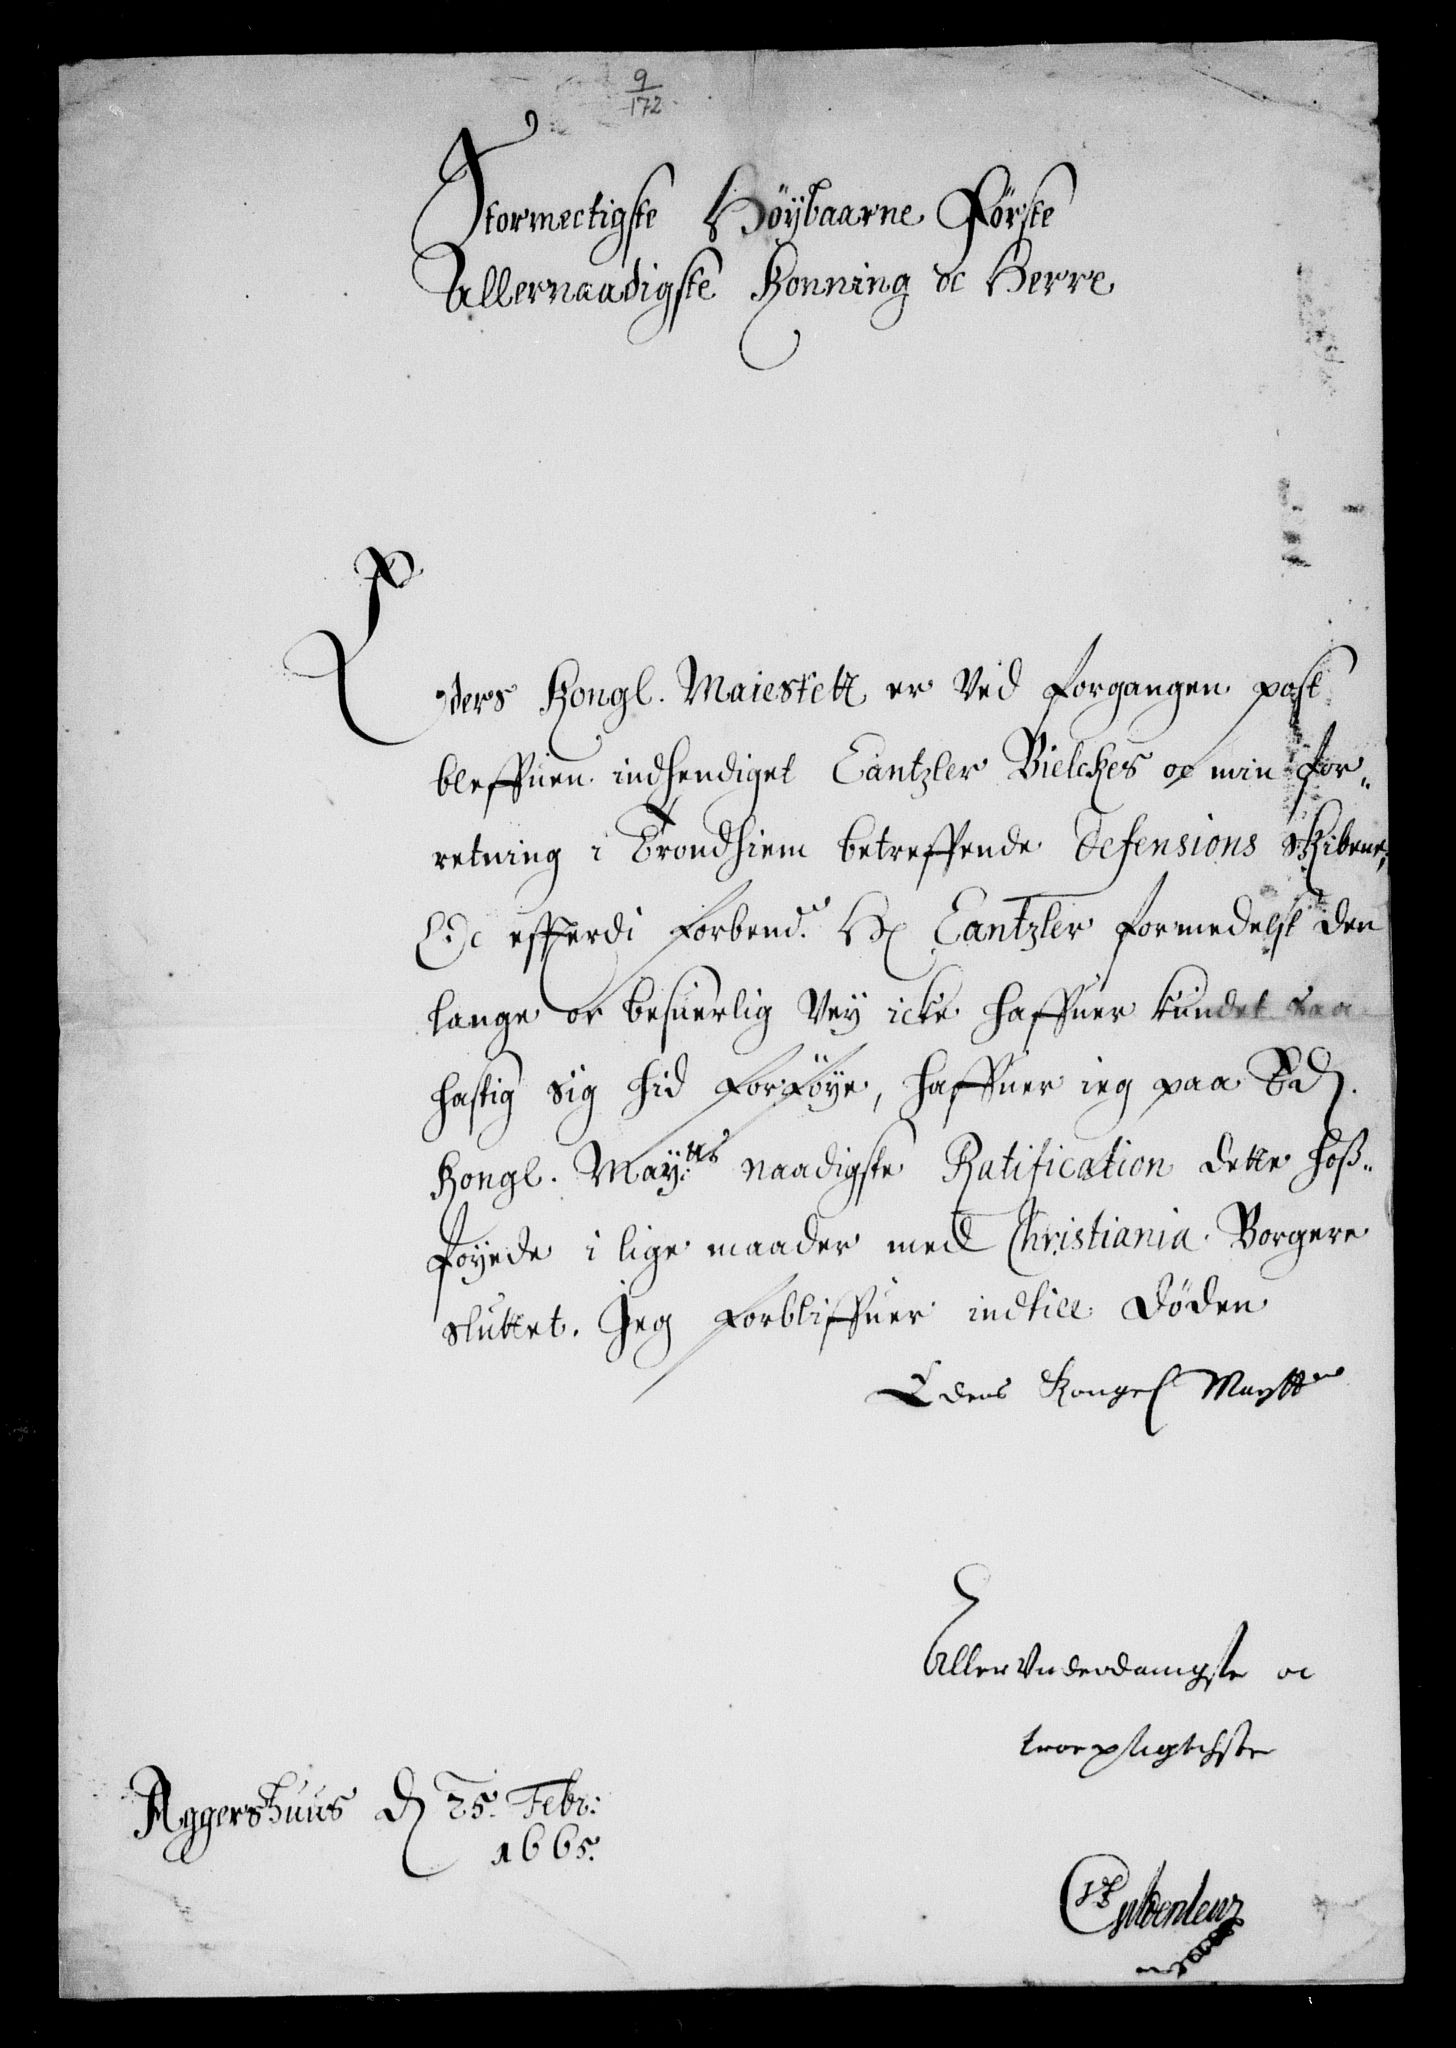 9
172.
Stormectigste Höybaarne Förste
Allernaadigste Konning oc Herre
Eders Kongl. Maiestett er Ved forgangen post
bleffuen indsendiget Cantzler Bielckes oc min for„
retning i Trondhiem betreffende Defensions Skibene,
Oc efterdi forbend. H Cantzler formedelst den
lange oc besuerlig Vey icke haffuer kundet saa
hastig sig hid forföye, haffuer ieg paa Ed.
Kongl. May:tts naadigste Ratification dette hoß„
föyede i lige maader med Christiania Borgere
sluttet. Jeg forbliffuer indtill döden
Eders Kongel Maytts
Allerunderdanigste oc
troepligtigste
Aggershuus d 25. Febr:
1665.
Gyldenleu